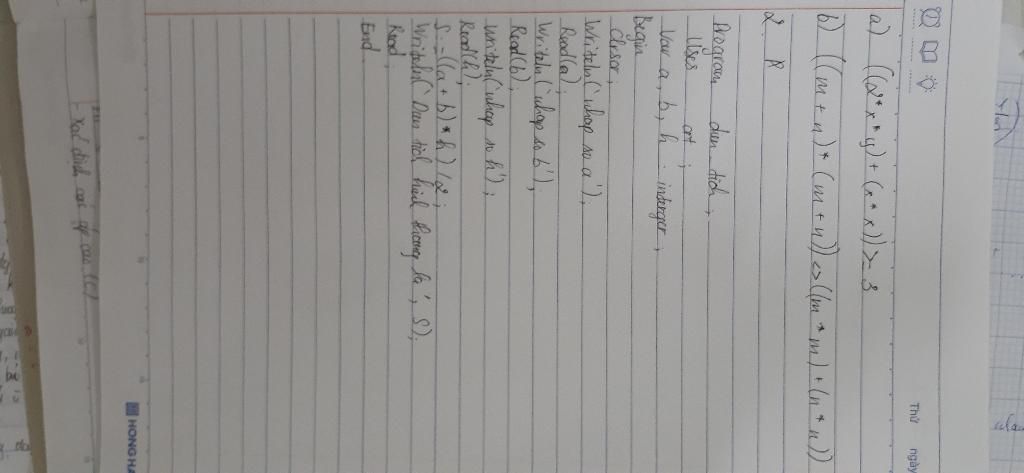 Thứ ngày
a) ((2*x*y) + (x*x)) >= 3
b) ((m+n)*(m+n)) <> ((m*m) + (n*n))
2.
Program dien_tich;
Uses crt;
Var a, b, h : interger;
Begin
Clrscr;
Writeln('nhap so a');
Read(a);
Writeln('nhap so b');
Read(b);
Writeln('nhap so h');
Read(h);
S:=((a+b)*h)/2;
Writeln('Dien tich hinh thang la', S);
Read;
End.
HONG HA
- Xác định các